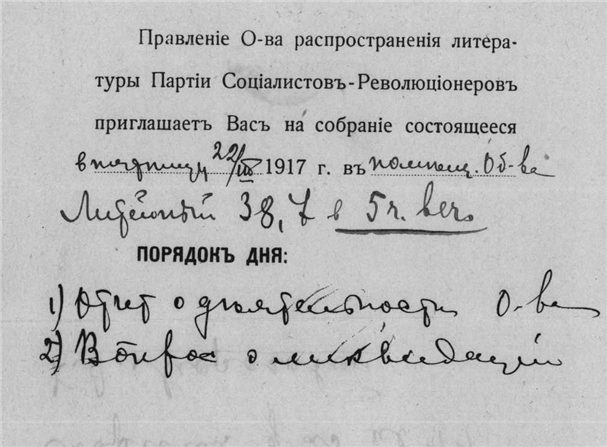 Правленіе О-ва распространенія литера-
туры Партіи Соціалистовъ-Революціонеровъ
приглашаетъ Васъ на собраніе состоящееся
в пятницу 22/III 1917 г. въ помѣщ. Об-ва
Литейный 38, 7 в 5 ч. веч.
ПОРЯДОКЪ ДНЯ:
1) Отчет о дѣятельности О-ва
2) Вопрос о ликвидаціи